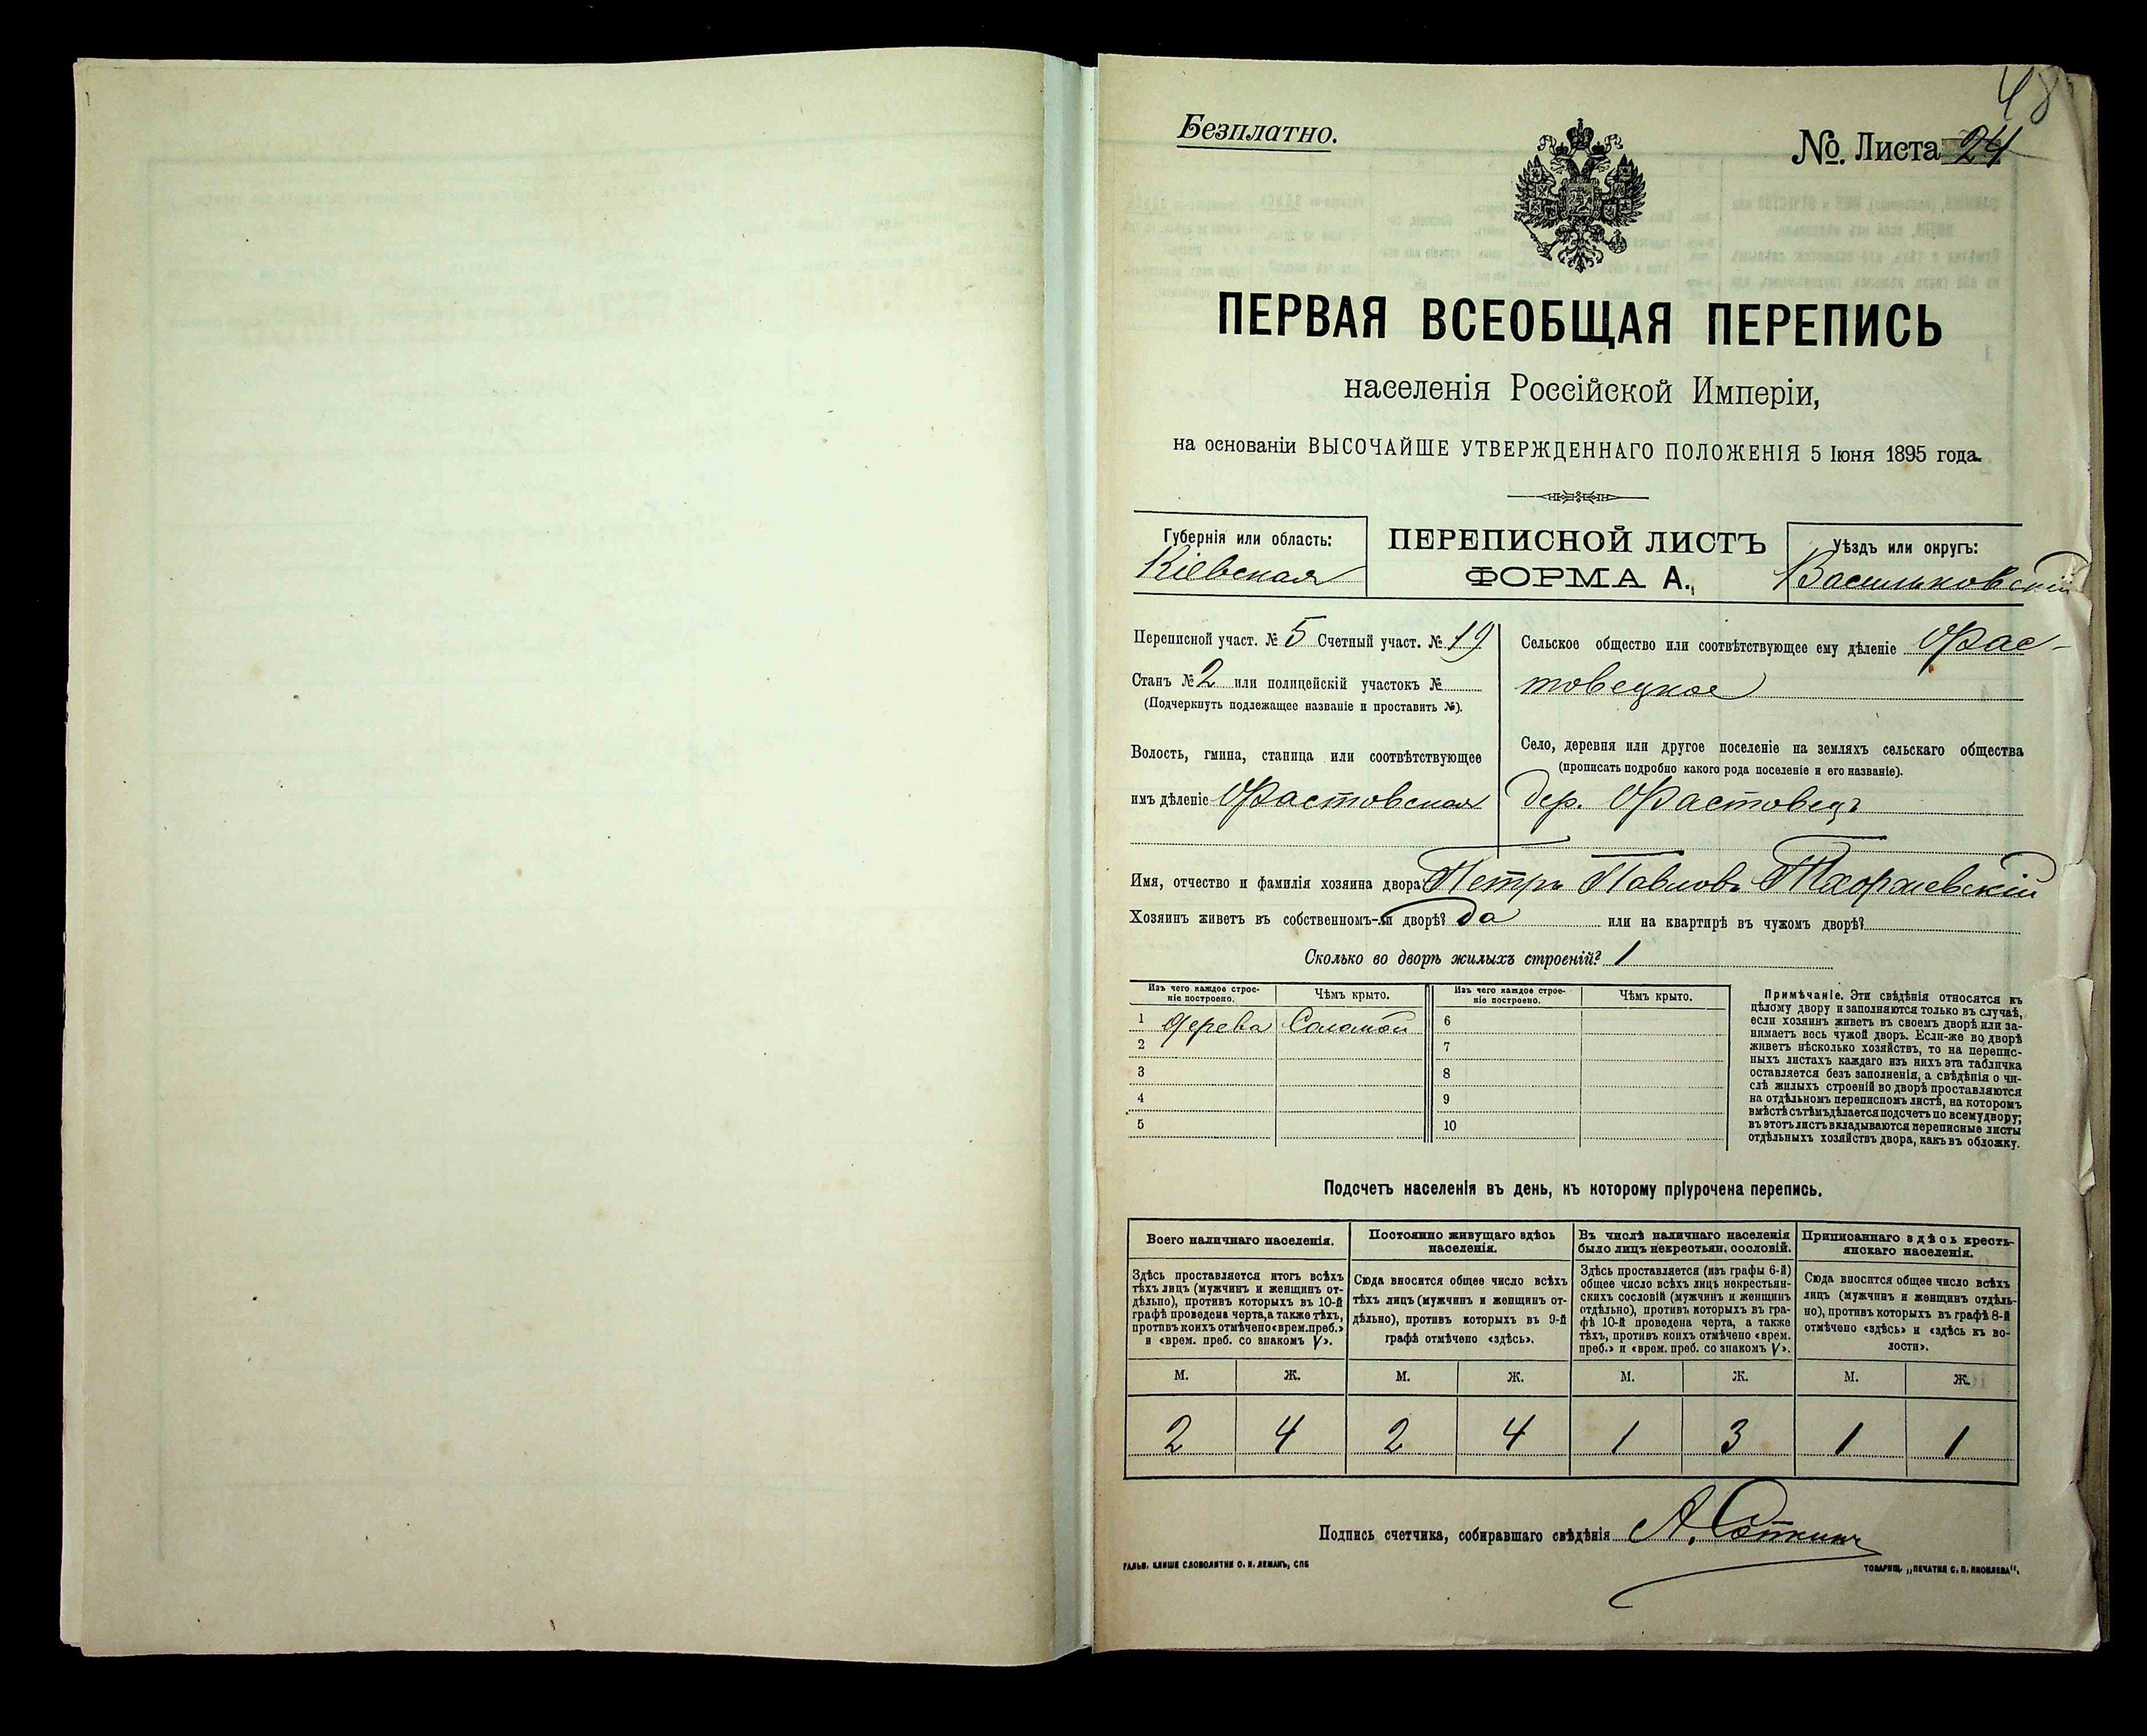 48
Безплатно.
№. Листа 24
ПЕРВАЯ ВСЕОБЩАЯ ПЕРЕПИСЬ
населенія Россійской Имперіи,
на основаніи ВЫСОЧАЙШЕ УТВЕРЖДЕННАГО ПОЛОЖЕНІЯ 5 Іюня 1895 года.
Губернія или область:
Кіевская
ПЕРЕПИСНОЙ ЛИСТЪ
ФОРМА А.
Уѣздъ или округъ:
Васильковскій
Переписной участ. № 5 Счетный участ. № 19
Станъ № 2 или полицейскій участокъ №
(Подчеркнуть подлежащее названіе и проставить №).
Волость, гмина, станица или соотвѣтствующее
имъ дѣленіе Фастовская
Сельское общество или соотвѣтствующее ему дѣленіе Фас-
товецкое
Село, деревня или другое поселеніе на земляхъ сельскаго общества
(прописать подробно какого рода поселеніе и его названіе).
дер. Фастовецъ
Имя, отчество и фамилія хозяина двора Петръ Павловъ
Хозяинъ живетъ въ собственномъ-ли дворѣ? да или на квартирѣ въ чужомъ дворѣ?
Сколько во дворѣ жилыхъ строеній? 1
Изъ чего каждое строе-
ніе построено.
Чѣмъ крыто.
Изъ чего каждое строе-
ніе построено.
Чѣмъ крыто.
1 дерева Соломой 6
2 7
3 8
4 9
5 10
Примѣчаніе. Эти свѣдѣнія относятся къ
цѣлому двору и заполняются только въ случаѣ,
если хозяинъ живетъ въ своемъ дворѣ или за-
нимаетъ весь чужой дворъ. Если-же во дворѣ
живетъ нѣсколько хозяйствъ, то на перепис-
ныхъ листахъ каждаго изъ нихъ эта табличка
оставляется безъ заполненія, а свѣдѣнія о чи-
слѣ жилыхъ строеній во дворѣ проставляются
на отдѣльномъ переписномъ листѣ, на которомъ
вмѣстѣ съ тѣмъ дѣлается подсчетъ по всему двору;
въ этотъ листъ вкладываются переписные листы
отдѣльныхъ хозяйствъ двора, какъ въ обложку.
Подсчетъ населенія въ день, къ которому пріурочена перепись.
Всего наличнаго населенія.
Здѣсь проставляется итогъ всѣхъ
тѣхъ лицъ (мужчинъ и женщинъ от-
дѣльно), противъ которыхъ въ 10-й
графѣ проведена черта, а также тѣхъ,
противъ коихъ отмѣчено «врем. преб.»
и «врем. преб. со знакомъ V».
Постоянно живущаго здѣсь
населенія.
Сюда вносится общее число всѣхъ
тѣхъ лицъ (мужчинъ и женщинъ от-
дѣльно), противъ которыхъ въ 9-й
графѣ отмѣчено «здѣсь».
Въ числѣ наличнаго населенія
было лицъ некрестьян. сословій.
Здѣсь проставляется (изъ графы 6-й)
общее число всѣхъ лицъ некрестьян-
скихъ сословій (мужчинъ и женщинъ
отдѣльно), противъ которыхъ въ гра-
фѣ 10-й проведена черта, а также
тѣхъ, противъ коихъ отмѣчено «врем.
преб.» и «врем. преб. со знакомъ V».
Приписаннаго здѣсь кресть-
янскаго населенія.
Сюда вносится общее число всѣхъ
лицъ (мужчинъ и женщинъ отдѣль-
но), противъ которыхъ въ графѣ 8-й
отмѣчено «здѣсь» и «здѣсь къ во-
лости».
М. Ж. М. Ж. М. Ж. М. Ж.
2 4 2 4 1 3 1 1
Подпись счетчика, собиравшаго свѣдѣнія А.
ГАЛЬВ. КЛИШЕ СЛОВОЛИТНИ О. И. ЛЕМАНЪ, СПБ
ТОВАРИЩ. „ПЕЧАТНЯ С. П. ЯКОВЛЕВА“.